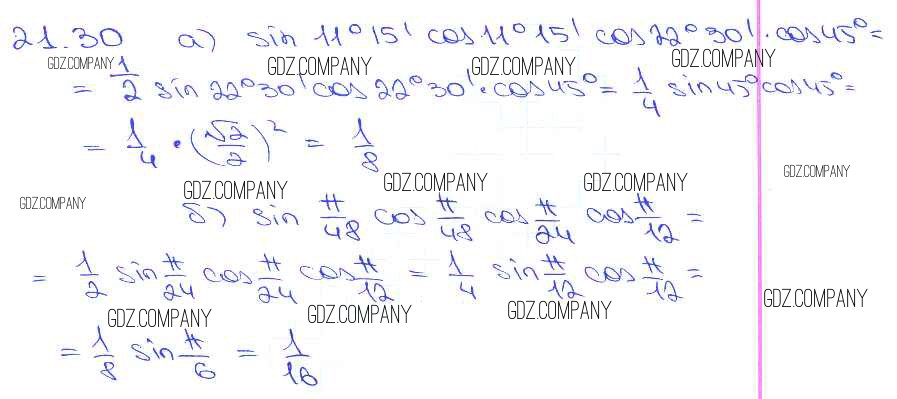 21.30 а) sin 11°15' cos 11°15' cos 22°30' · cos 45° =
GDZ.COMPANY GDZ.COMPANY GDZ.COMPANY GDZ.COMPANY
= 1/2 sin 22°30' cos 22°30' · cos 45° = 1/4 sin 45° cos 45° =
= 1/4 · (√2/2)² = 1/8
GDZ.COMPANY GDZ.COMPANY GDZ.COMPANY GDZ.COMPANY GDZ.COMPANY
б) sin π/48 cos π/48 cos π/24 cos π/12 =
= 1/2 sin π/24 cos π/24 cos π/12 = 1/4 sin π/12 cos π/12 =
GDZ.COMPANY GDZ.COMPANY GDZ.COMPANY GDZ.COMPANY
= 1/8 sin π/6 = 1/16